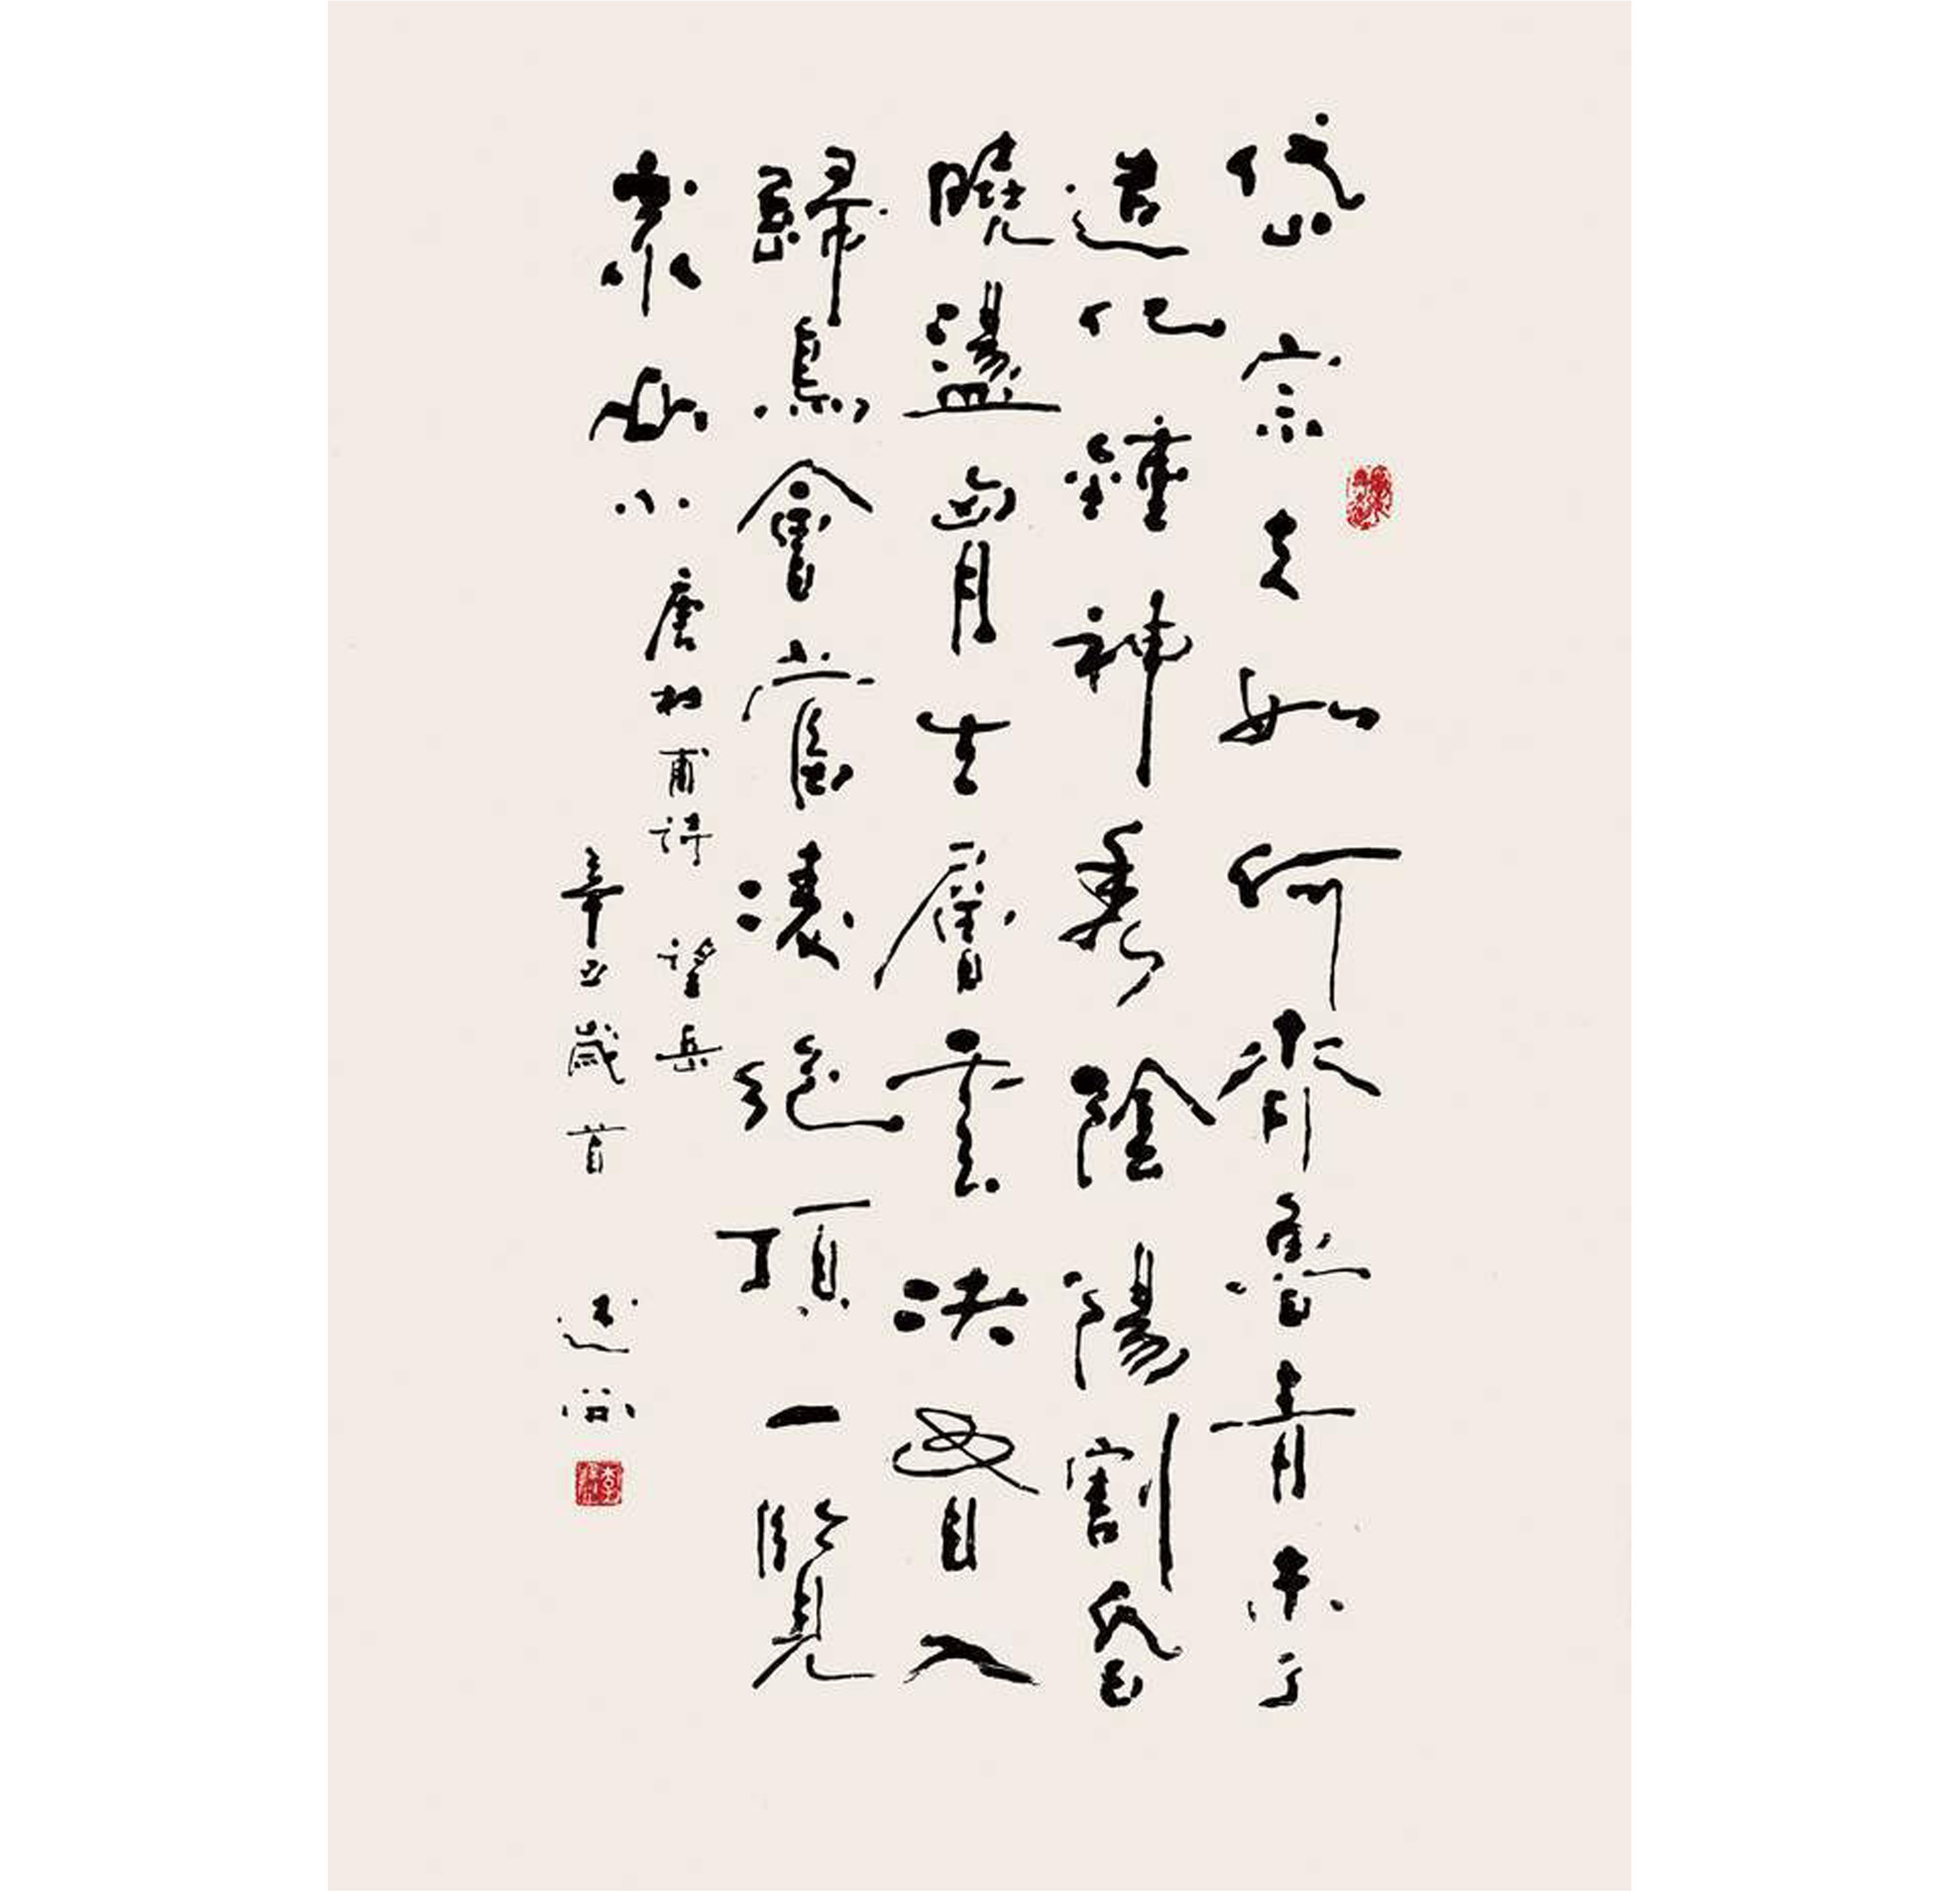 岱宗夫如何齊魯青未了
造化鍾神秀陰陽割昏
曉盪胷生層雲決眥入
歸鳥會當凌絕頂一覽
衆山小
唐杜甫詩 望岳
辛丑歲首